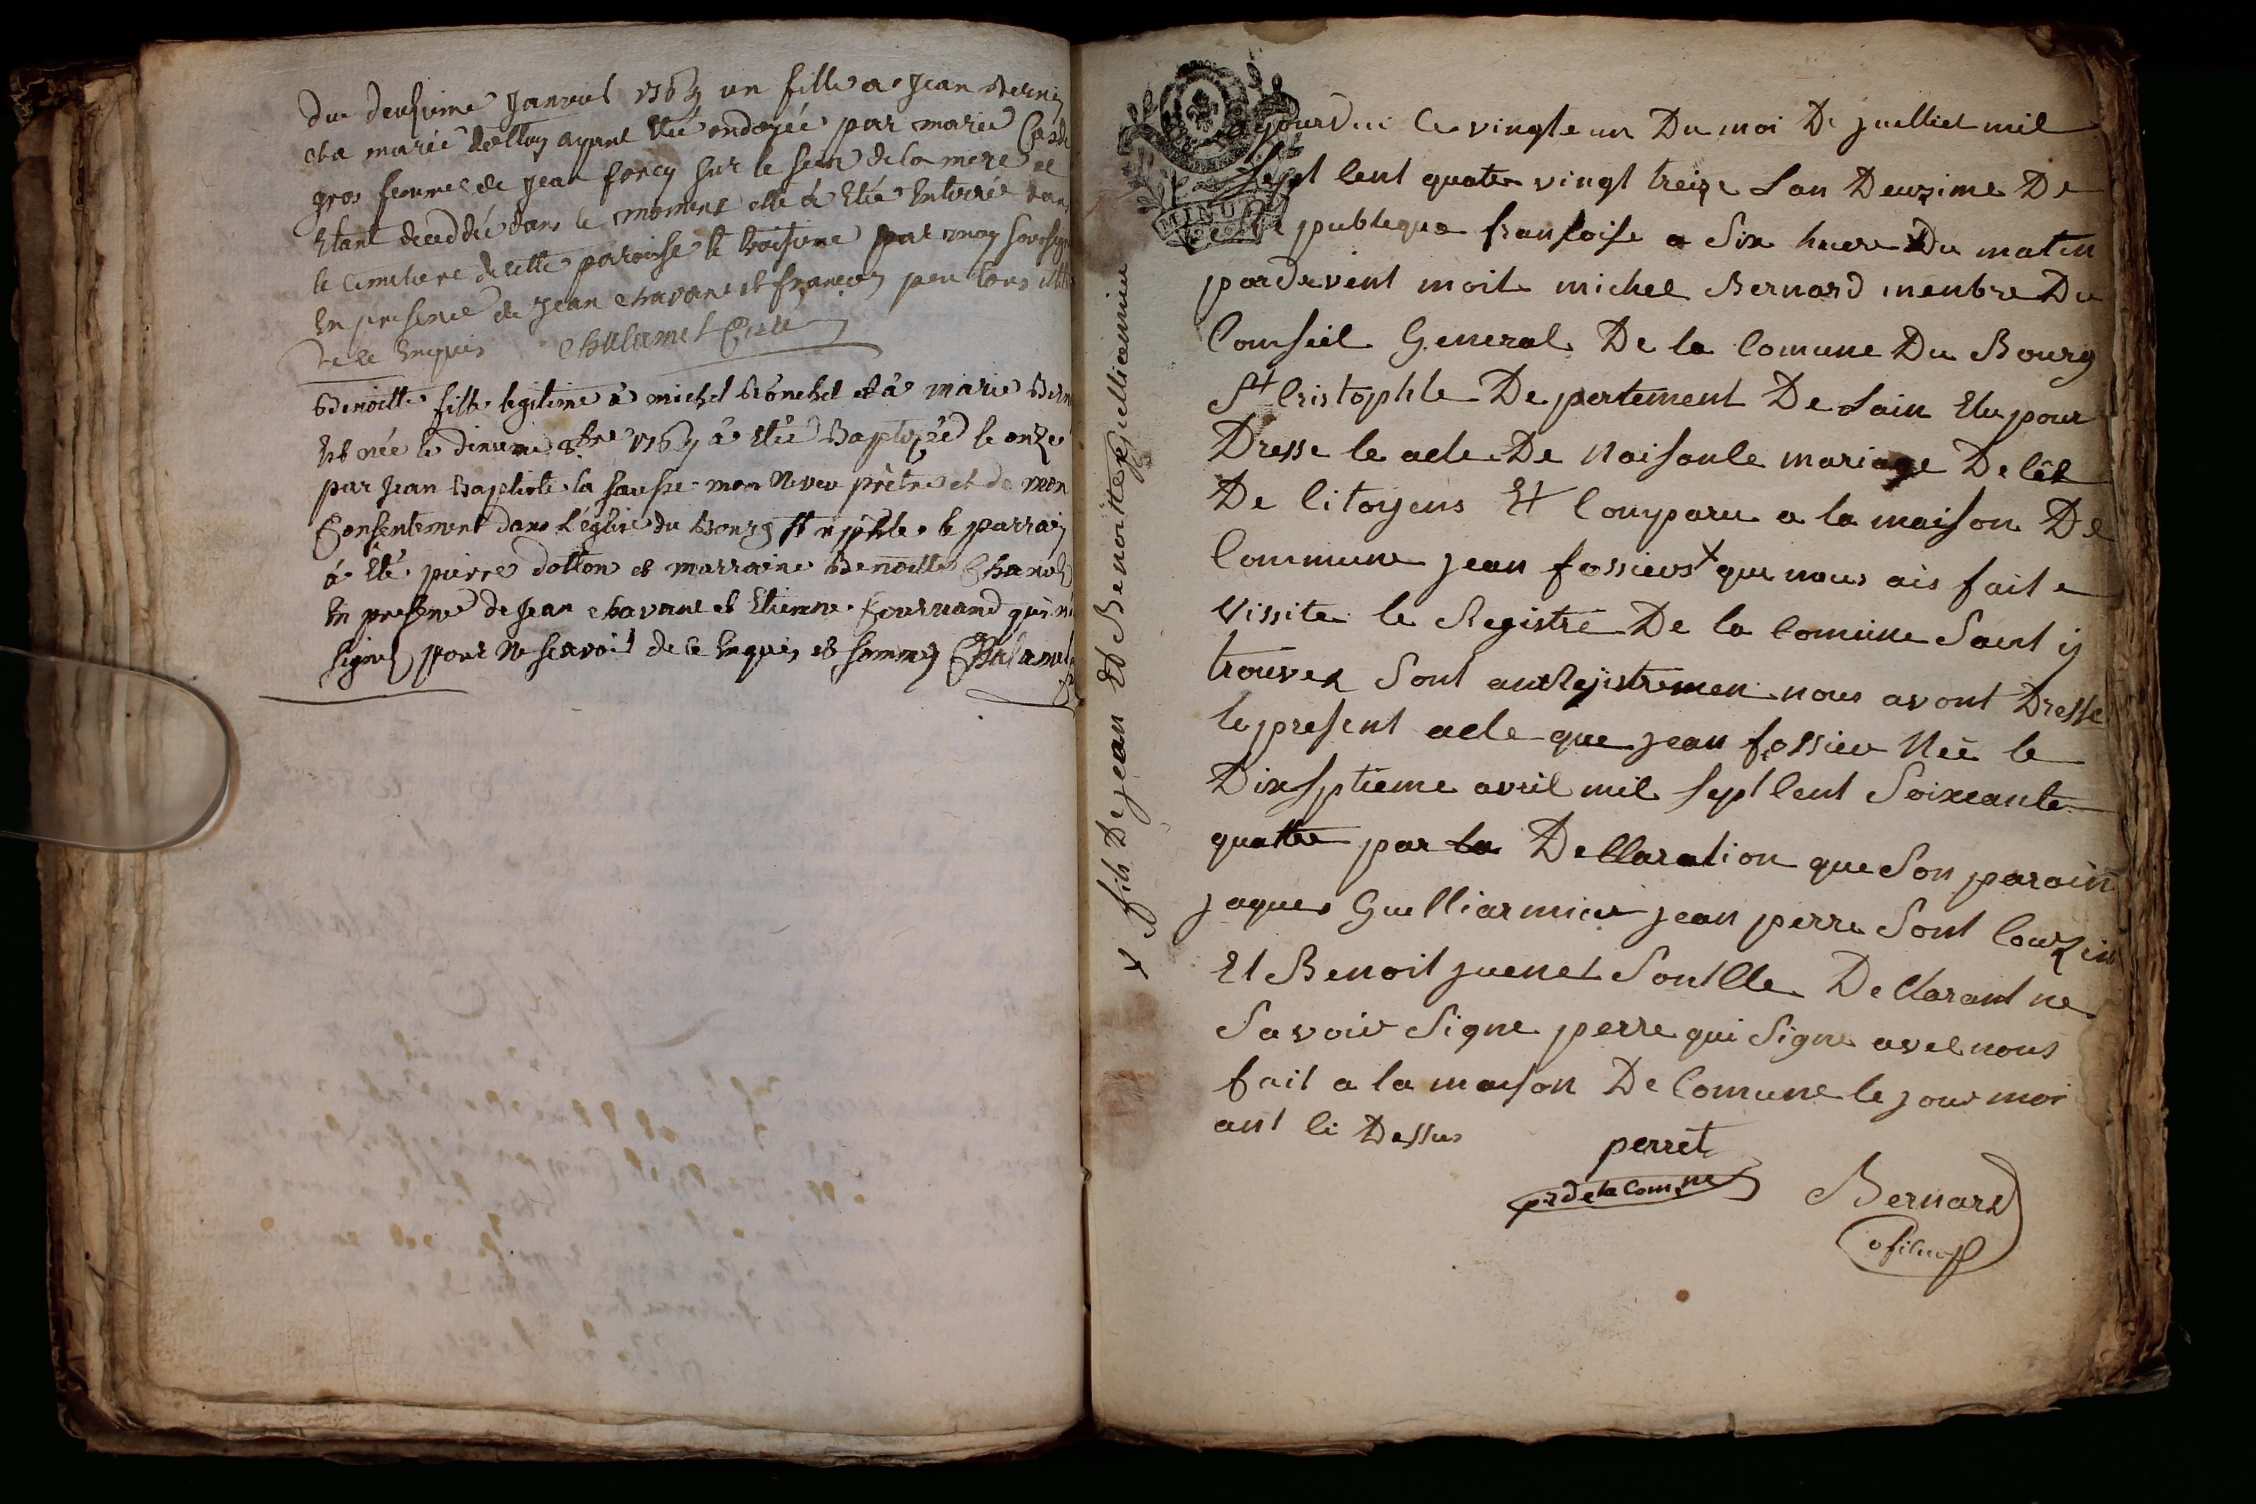 du deuxsime Janvied 1769 un fille a Jean Berni
et a marie dotton ayant Eté ondoyée par marie
gros femme de Jean forey sur le sein de la mere et
Etant décédée dans le moment elle a Eté Enterrée dans
le cimetiere de cette paroisse le troisieme par moy soussigné
En presence de Jean chavant et françois peu tous
de ce Enquis Chalamel Curé
Benoitte fille legitime à michel Bronchet et à marie Bern
Est née le dixieme 8bre 1769 à Eté Baptisée le onze
par Jean Baptiste la sausse mon Neveu prêtre et de mon
Consentement dans L'église du Bourg St xphle le parrain
à Eté pierre dotton et marraine Benoitte Chanel
En presence de Jean chavant et Etienne fournand qui n
signes pour Ne sçavoir de ce Enquis et sommes Chalamel
ajourdui Ce vingte un Du moi De juelliet mil
Sept Cent quater vingt treize Lan Deuzime De
publeque fransoise a Six huere Du maten
pardevent moite michel Bernard menbre Du
Conseil General De la Comune Du Bourg
St Cristophle De pertement De Lain Elu pour
Dresse le acte De Naisanse mariage De cès
De Citoyens Et Comparu a la maison De
Commune jean fossieux x que nous ais fait
Vissite le Registre De la Comune Sant ij
trouver Sont anregistremen nous avont Dresse
le present acte que jean fossieu Née le
Dixseptieme avril mil Sept Cent Soixeante
quattre par la Decllaration que Son parain
jaques Guelliarmier jean perre Sont Couzin
Et Benoit juenet Sont Declarant ne
Savoir Signe perre qui Signe avec nous
fait a la mayson De Comune le jour moi
ant Ci Dessus
perret
pr de la Comne
Bernard
ofisie p
x fils De jean Et Benoitte juelliarmier